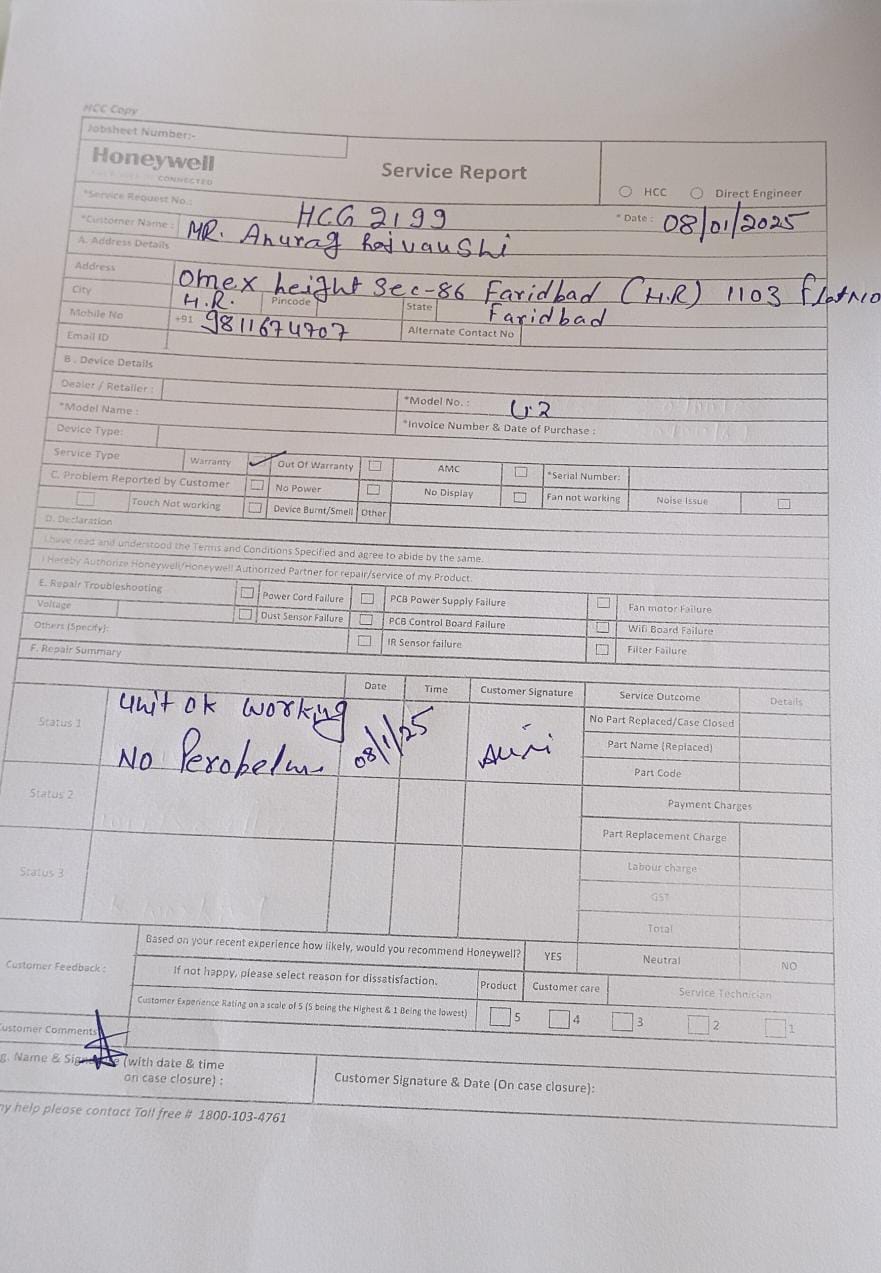 HCC Copy
Jobsheet Number:-
Honeywell
CONNECTED
Service Report
HCC Direct Engineer
*Service Request No.: HCG 2199
*Date : 08/01/2025
*Customer Name : MR. Anurag Rajvanshi
A. Address Details
Address omex height Sec-86 Faridbad (H.R) 1103 flat No
City H.R. Pincode State Faridbad
Mobile No +91 9811674707 Alternate Contact No
Email ID
B . Device Details
Dealer / Retailer :
*Model No. : U2
*Model Name :
*Invoice Number & Date of Purchase :
Device Type:
Service Type Warranty Out Of Warranty AMC *Serial Number:
C. Problem Reported by Customer No Power No Display Fan not working Noise Issue
Touch Not working Device Burnt/Smell Other
D. Declaration
I have read and understood the Terms and Conditions Specified and agree to abide by the same.
I Hereby Authorize Honeywell/Honeywell Authorized Partner for repair/service of my Product.
E. Repair Troubleshooting Power Cord Failure PCB Power Supply Failure Fan motor Failure
Voltage Dust Sensor Failure PCB Control Board Failure Wifi Board Failure
Others (Specify): IR Sensor failure Filter Failure
F. Repair Summary
Date Time Customer Signature Service Outcome Details
Status 1 unit ok working
No Perobelm 08/1/25
No Part Replaced/Case Closed
Part Name (Replaced)
Part Code
Status 2
Payment Charges
Part Replacement Charge
Status 3
Labour charge
GST
Total
Customer Feedback :
Based on your recent experience how likely, would you recommend Honeywell? YES Neutral NO
If not happy, please select reason for dissatisfaction. Product Customer care Service Technician
Customer Experience Rating on a scale of 5 (5 being the Highest & 1 Being the lowest) 5 4 3 2 1
ustomer Comments
g. Name & (with date & time
on case closure) :
Customer Signature & Date (On case closure):
ny help please contact Toll free # 1800-103-4761